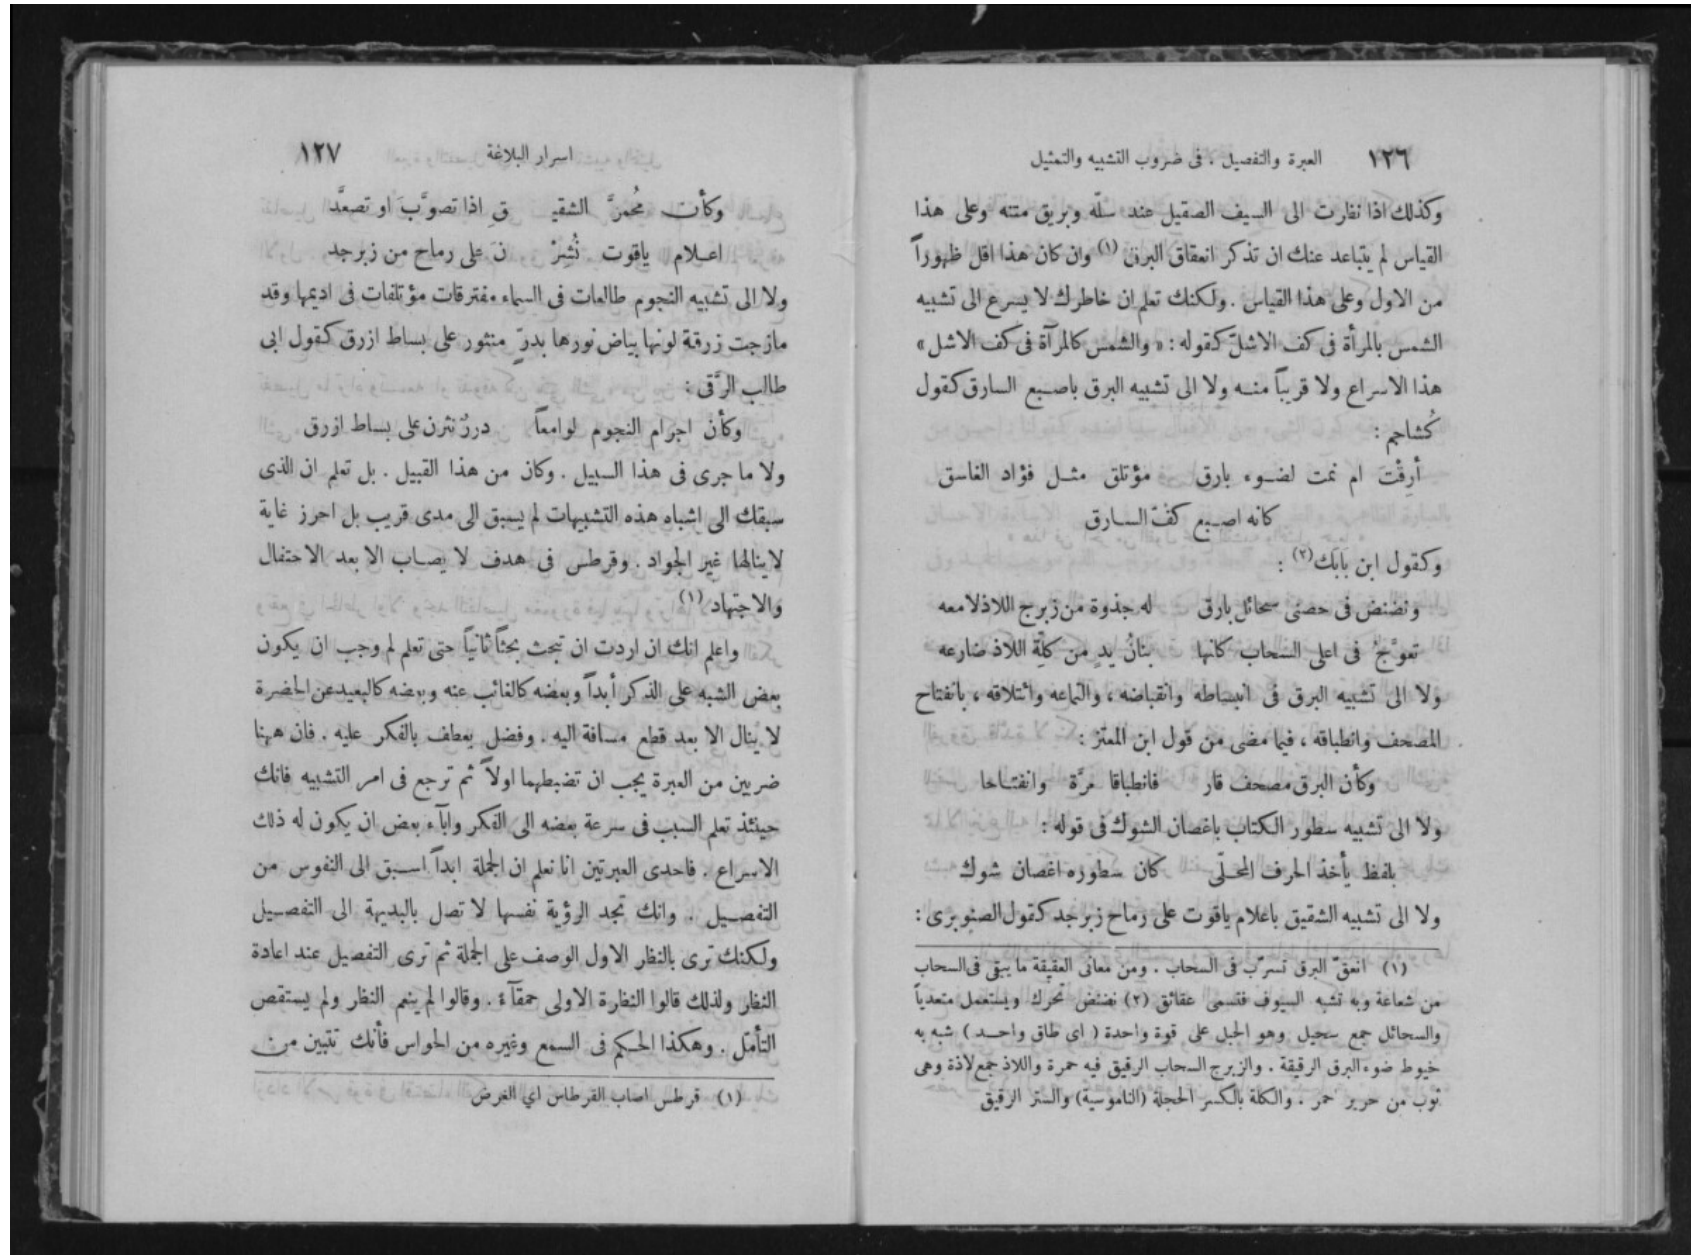 ١٢٦ العبرة والتفصيل ، فى ضروب التشبيه والتمثيل
وكذلك اذا نظرت الى السيف الصقيل عند سلّه وبريق متنه وعلى هذا
القياس لم يتباعد عنك ان تذكر انعقاق البرق (١) وان كان هذا اقل ظهوراً
من الاول وعلى هذا القياس . ولكنك تعلم ان خاطرك لا يسرع الى تشبيه
الشمس بالمرأة فى كف الاشلّ كقوله : « والشمس كالمرآة فى كف الاشل »
هذا الاسراع ولا قريباً منه ولا الى تشبيه البرق باصبع السارق كقول
كُشاجم :
أرِقْتَ ام نمت لضوء بارق مؤتلق مثل فؤاد العاشق
كانه اصبع كفّ السارق
وكقول ابن بَابَك (٢) :
ونضنض فى حضنى سحائل بارق له جذوة من زبرج اللاذ لامعه
تعوَّج فى اعلى السحاب كانها بنانُ يدٍ من كلّة اللاذ ضارعه
ولا الى تشبيه البرق فى انبساطه وانقباضه ، والتماعه وائتلاقه ، بانفتاح
المصحف وانطباقه ، فيما مضى من قول ابن المعتز :
وكأن البرق مصحف قار فانطباقا مرَّة وانفتاحا
ولا الى تشبيه سطور الكتاب باغصان الشوك فى قوله :
بلفظ يأخذ الحرف المحلّى كان سطوره اغصان شوك
ولا الى تشبيه الشقيق باعلام ياقوت على رماح زبرجد كقول الصنوبرى :
(١) انعقّ البرق تسرّب فى السحاب . ومن معانى العقيقة ما يبقى فى السحاب
من شعاعة وبه تشبه السيوف فتسمى عقائق (٢) نضنض تحرك ويستعمل متعدياً
والسحائل جمع سحيل وهو الحبل على قوة واحدة ( اى طاق واحد ) شبه به
خيوط ضوء البرق الرقيقة . والزبرج السحاب الرقيق فيه حمرة واللاذ جمع لاذة وهى
ثوب من حرير حمر . والكلة بالكسر الحجلة (الناموسية) والستر الرقيق
اسرار البلاغة ١٢٧
وكأن مُحمرَّ الشقيـ ـقِ اذا تصوَّبَ او تصعَّد
اعلام ياقوت نُشِرْ نَ على رماح من زبرجد
ولا الى تشبيه النجوم طالعات فى السماء مفترقات مؤتلفات فى اديمها وقد
مازجت زرقة لونها بياض نورها بدرّ منثور على بساط ازرق كقول ابى
طالب الرَّقى :
وكأن اجرام النجوم لوامعاً دررٌ نثرن على بساط ازرق
ولا ما جرى فى هذا السبيل . وكان من هذا القبيل . بل تعلم ان الذى
سبقك الى اشباه هذه التشبيهات لم يسبق الى مدى قريب بل احرز غاية
لا ينالها غير الجواد . وقرطس فى هدف لا يصاب الا بعد الاحتفال
والاجتهاد (١)
واعلم انك ان اردت ان تبحث بحثاً ثانياً حتى تعلم لم وجب ان يكون
بعض الشبه على الذكر أبداً وبعضه كالغائب عنه وبعضه كالبعيد عن الحضرة
لا ينال الا بعد قطع مسافة اليه . وفضل بعطف بالفكر عليه . فان ههنا
ضربين من العبرة يجب ان تضبطهما اولاً ثم ترجع فى امر التشبيه فانك
حينئذ تعلم السبب فى سرعة بعضه الى الفكر واباء بعض ان يكون له ذلك
الاسراع . فاحدى العبرتين انا نعلم ان الجملة ابداً اسبق الى النفوس من
التفصيل . وانك تجد الرؤية نفسها لا تصل بالبديهة الى التفصيل
ولكنك ترى بالنظر الاول الوصف على الجملة ثم ترى التفصيل عند اعادة
النظر ولذلك قالوا النظرة الاولى حمقآء . وقالوا لم ينعم النظر ولم يستقص
التأمّل . وهكذا الحكم فى السمع وغيره من الحواس فأنك تتبين من
(١) قرطس اصاب القرطاس اي الغرض